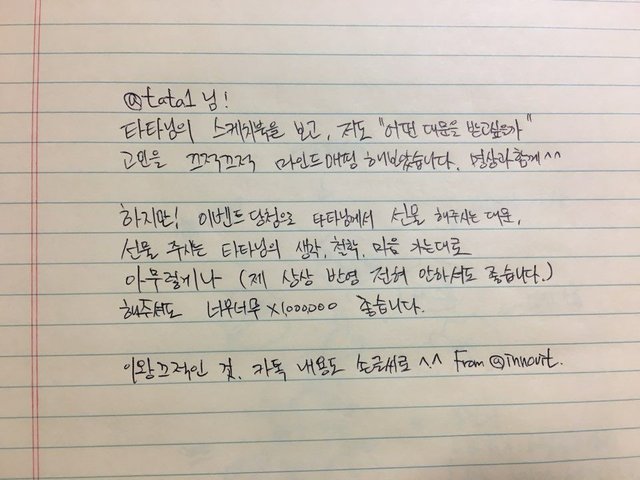 @tata1 님!
타타님의 스케치북을 보고, 저도 "어떤 대문을 받고싶은가"
고민을 끄적끄적 마인드매핑 해보았습니다. 명상과함께^^
하지만! 이벤트 당첨으로 타타님에서 선물 해주시는 대문,
선물 주시는 타타님의 생각, 철학, 마음 가는대로
아무렇게나 (제 상상 반영 전혀 안하셔도 좋습니다.)
해주셔도 너무너무 x1,000,000 좋습니다.
이왕끄적인 것, 카톡 내용도 손글씨로 ^.^ From @innovit.